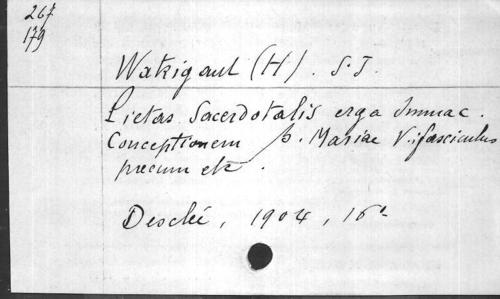 267
179
Watrigant (H). S.J.
Pietas Sacerdotalis erga Immac.
Conceptionem b. Mariae V. fasciculus
precum etc.
Desclée, 1904, 16º